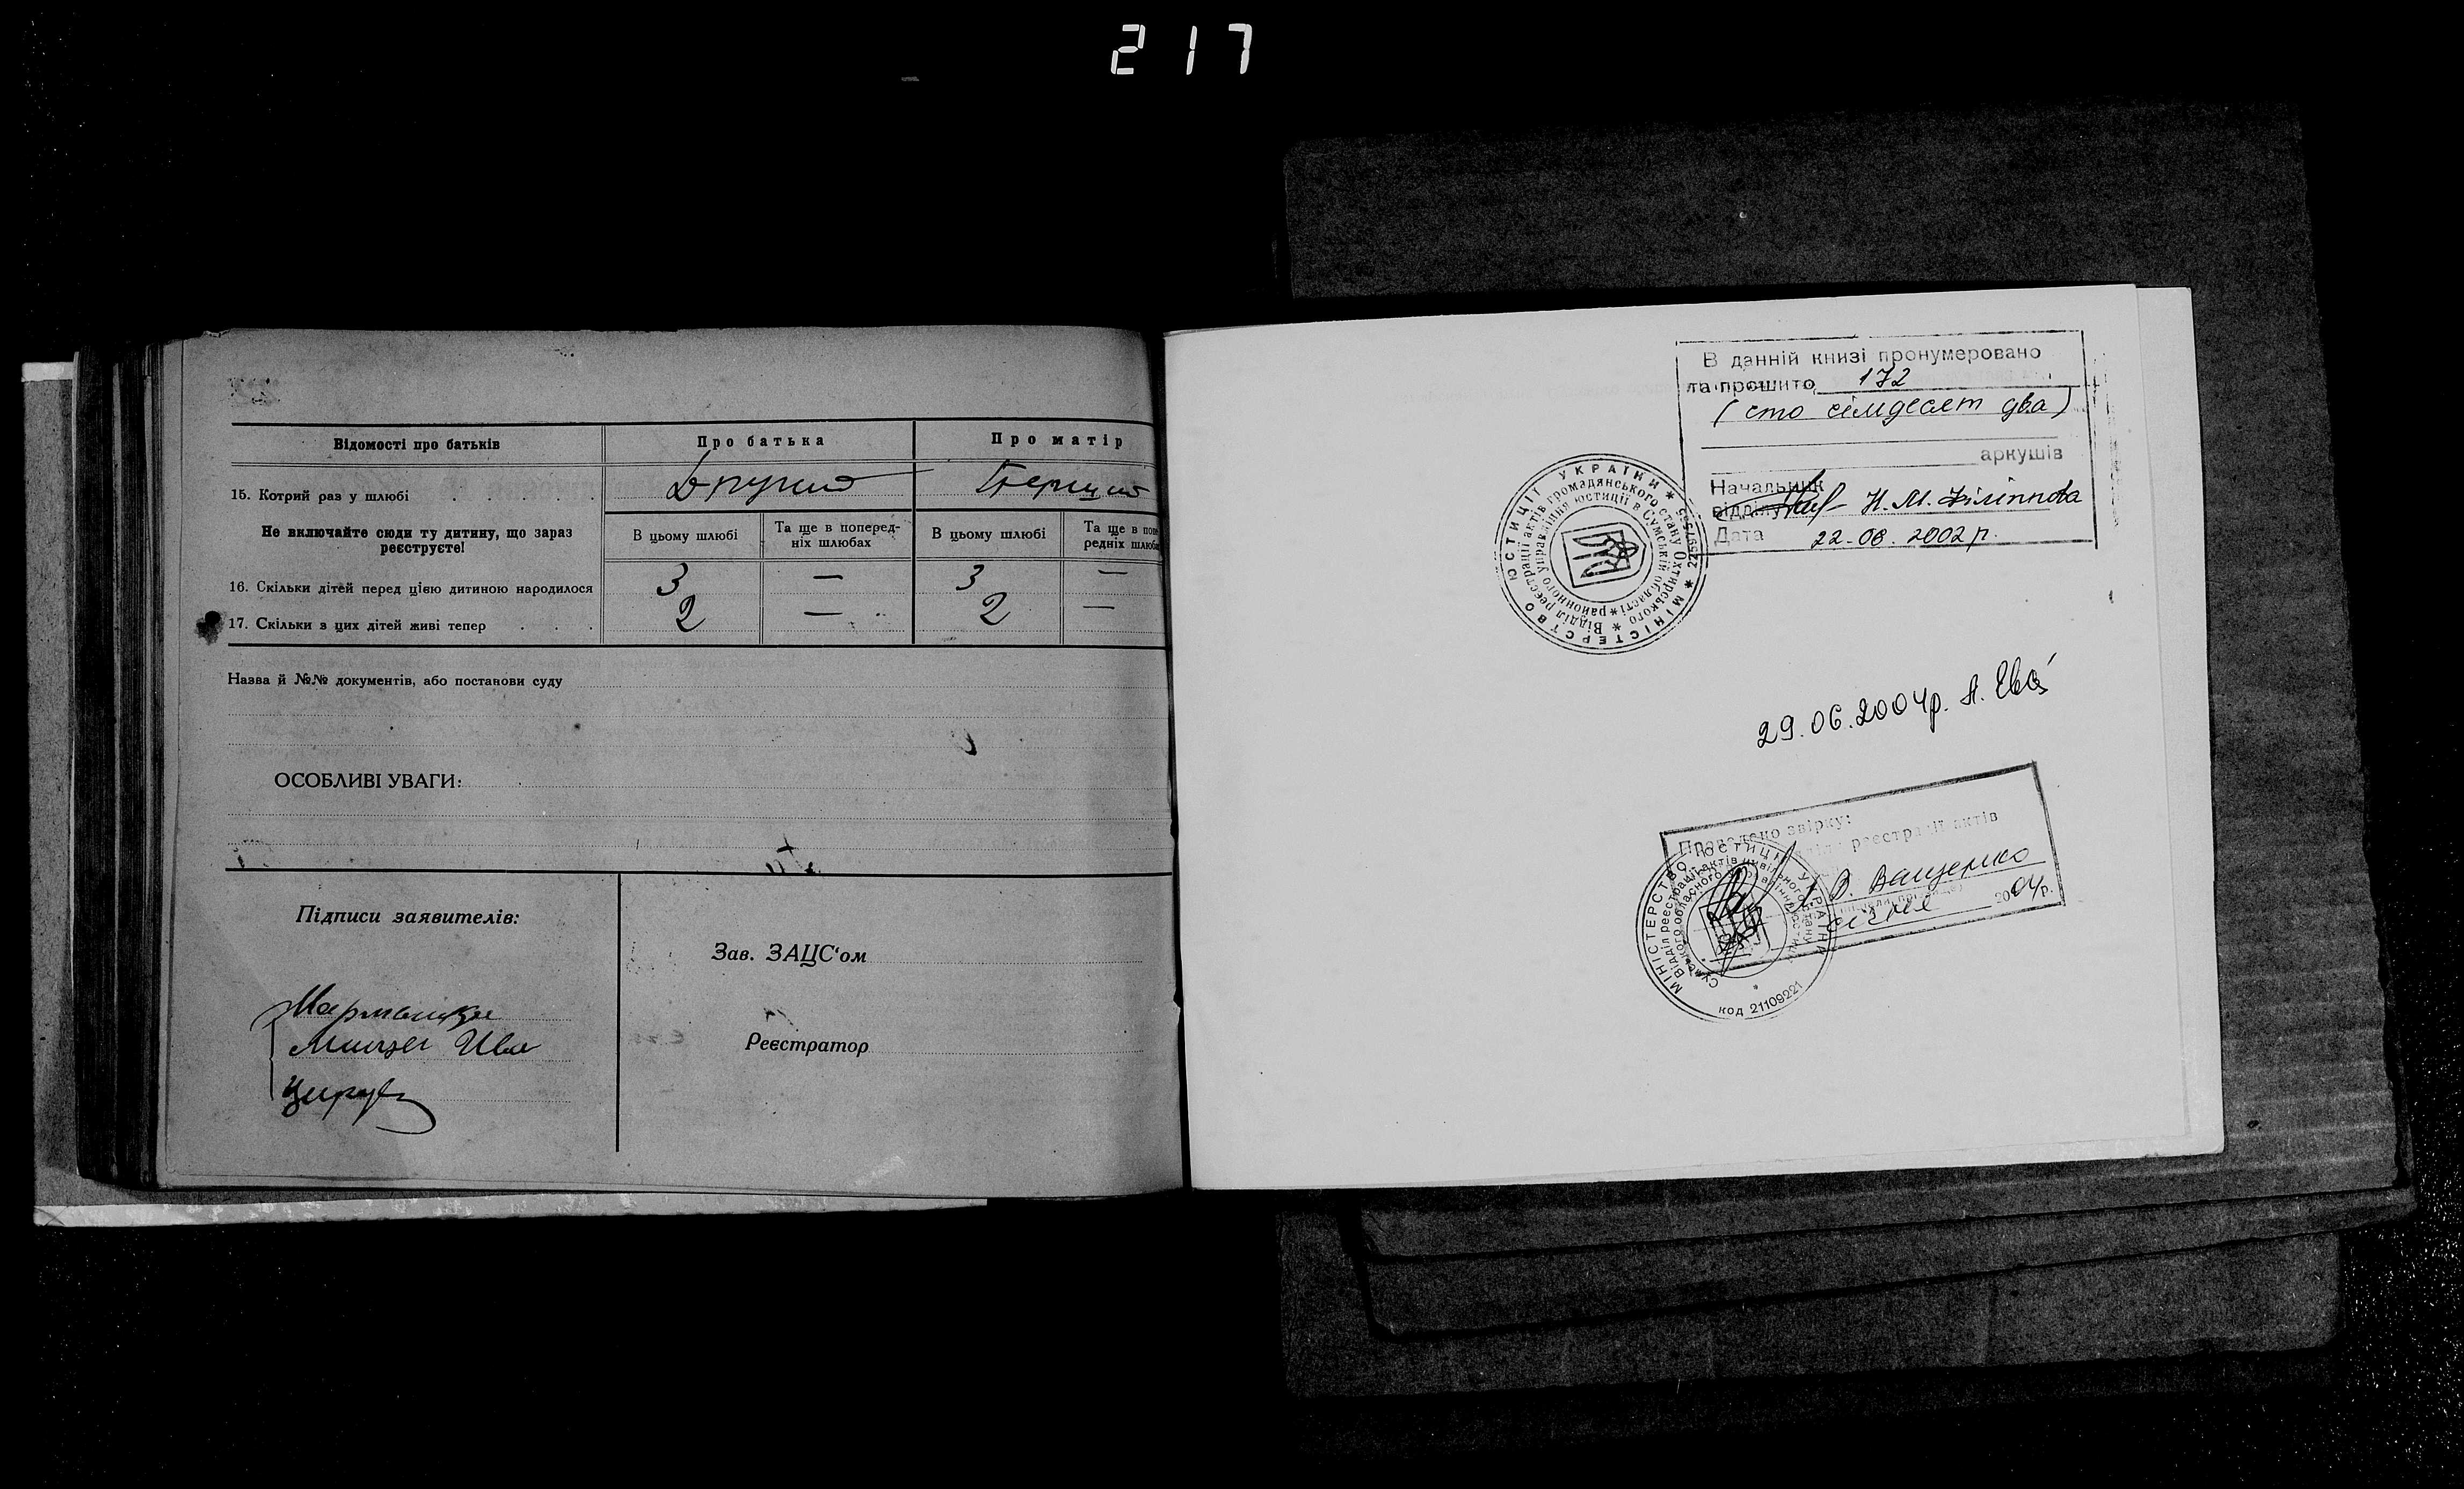 217
Відомості про батьків
Про батька
Про матір
15. Котрий раз у шлюбі
Другий
Перший
Не включайте сюди ту дитину, що зараз
реєструєте!
В цьому шлюбі
Та ще в поперед-
ніх шлюбах
В цьому шлюбі
Та ще в попе
редніх шлюба
16. Скільки дітей перед цією дитиною народилося
3 — 3 —
17. Скільки з цих дітей живі тепер
2 — 2 —
Назва й №№ документів, або постанови суду
ОСОБЛИВІ УВАГИ:
Підписи заявителів:
Зав. ЗАЦС'ом
Реєстратор
В данній книзі пронумеровано
та прошито 172
(сто сімдесят два)
аркушів
Начальник
відділу Н. М. Філіппова
Дата 22.08.2002 р.
* МІНІСТЕРСТВО ЮСТИЦІЇ УКРАЇНИ *
* Відділ реєстрації актів громадянського стану Охтирського
районного управління юстиції в Сумській області *
29.06.2004р.
Проведено звірку:
реєстрації актів
В. Ващенко
січня 2004р.
МІНІСТЕРСТВО ЮСТИЦІЇ УКРАЇНИ
код 21109221